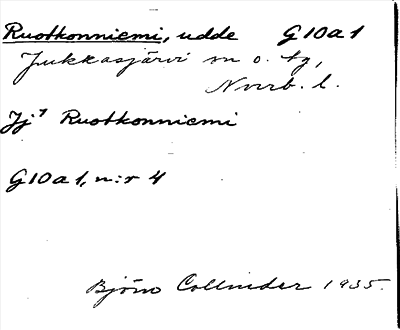 Ruotkonniemi, udde G 10 a 1
Jukkasjärvi sn o. tg,
Norrb. l.
Jj⁷ Ruotkonniemi
G 10 a 1, n:r 4
Björn Collinder 1935.